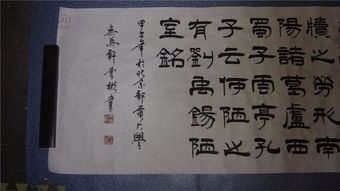 牘之勞形南
陽諸葛廬西
蜀子雲亭孔
子云何陋之
有劉禹錫陋
室銘
甲午年於北京郵電大學